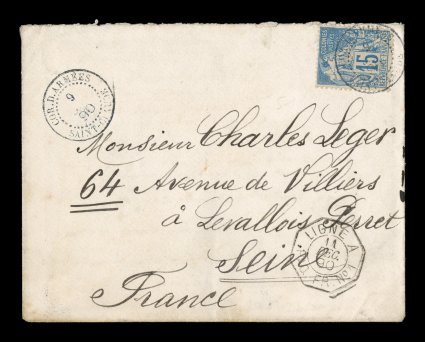 15
COR. D. ARMEES
9
90
Monsieur Charles Leger
64 Avenue de Villiers
à Levallois Perret
Seine
France
LIGNE A
11
DEC.
90
FR. Nº 1